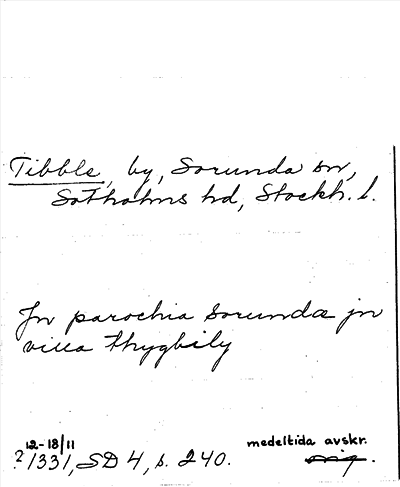 Tibble, by, Sorunda sn,
Sotholms hd, Stockh. l.
Jn parochia Sorunda jn
villa thygbily
12-18/11 medeltida avskr.
? 1331, SD 4, s. 240. orig.